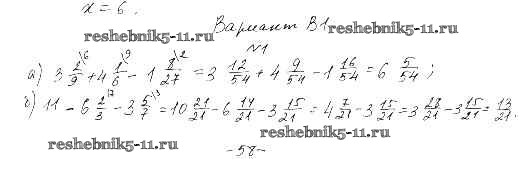 x = 6.
reshebnik5-11.ru
Вариант В1
reshebnik5-11.ru
N1
а) 3 2/9 \6 + 4 1/6 \9 - 1 8/27 \2 = 3 12/54 + 4 9/54 - 1 16/54 = 6 5/54 ;
б) 11 - 6 2/3 \7 - 3 5/7 \3 = 10 21/21 - 6 14/21 - 3 15/21 = 4 7/21 - 3 15/21 = 3 28/21 - 3 15/21 = 13/21.
reshebnik5-11.ru
reshebnik5-11.ru
-58-